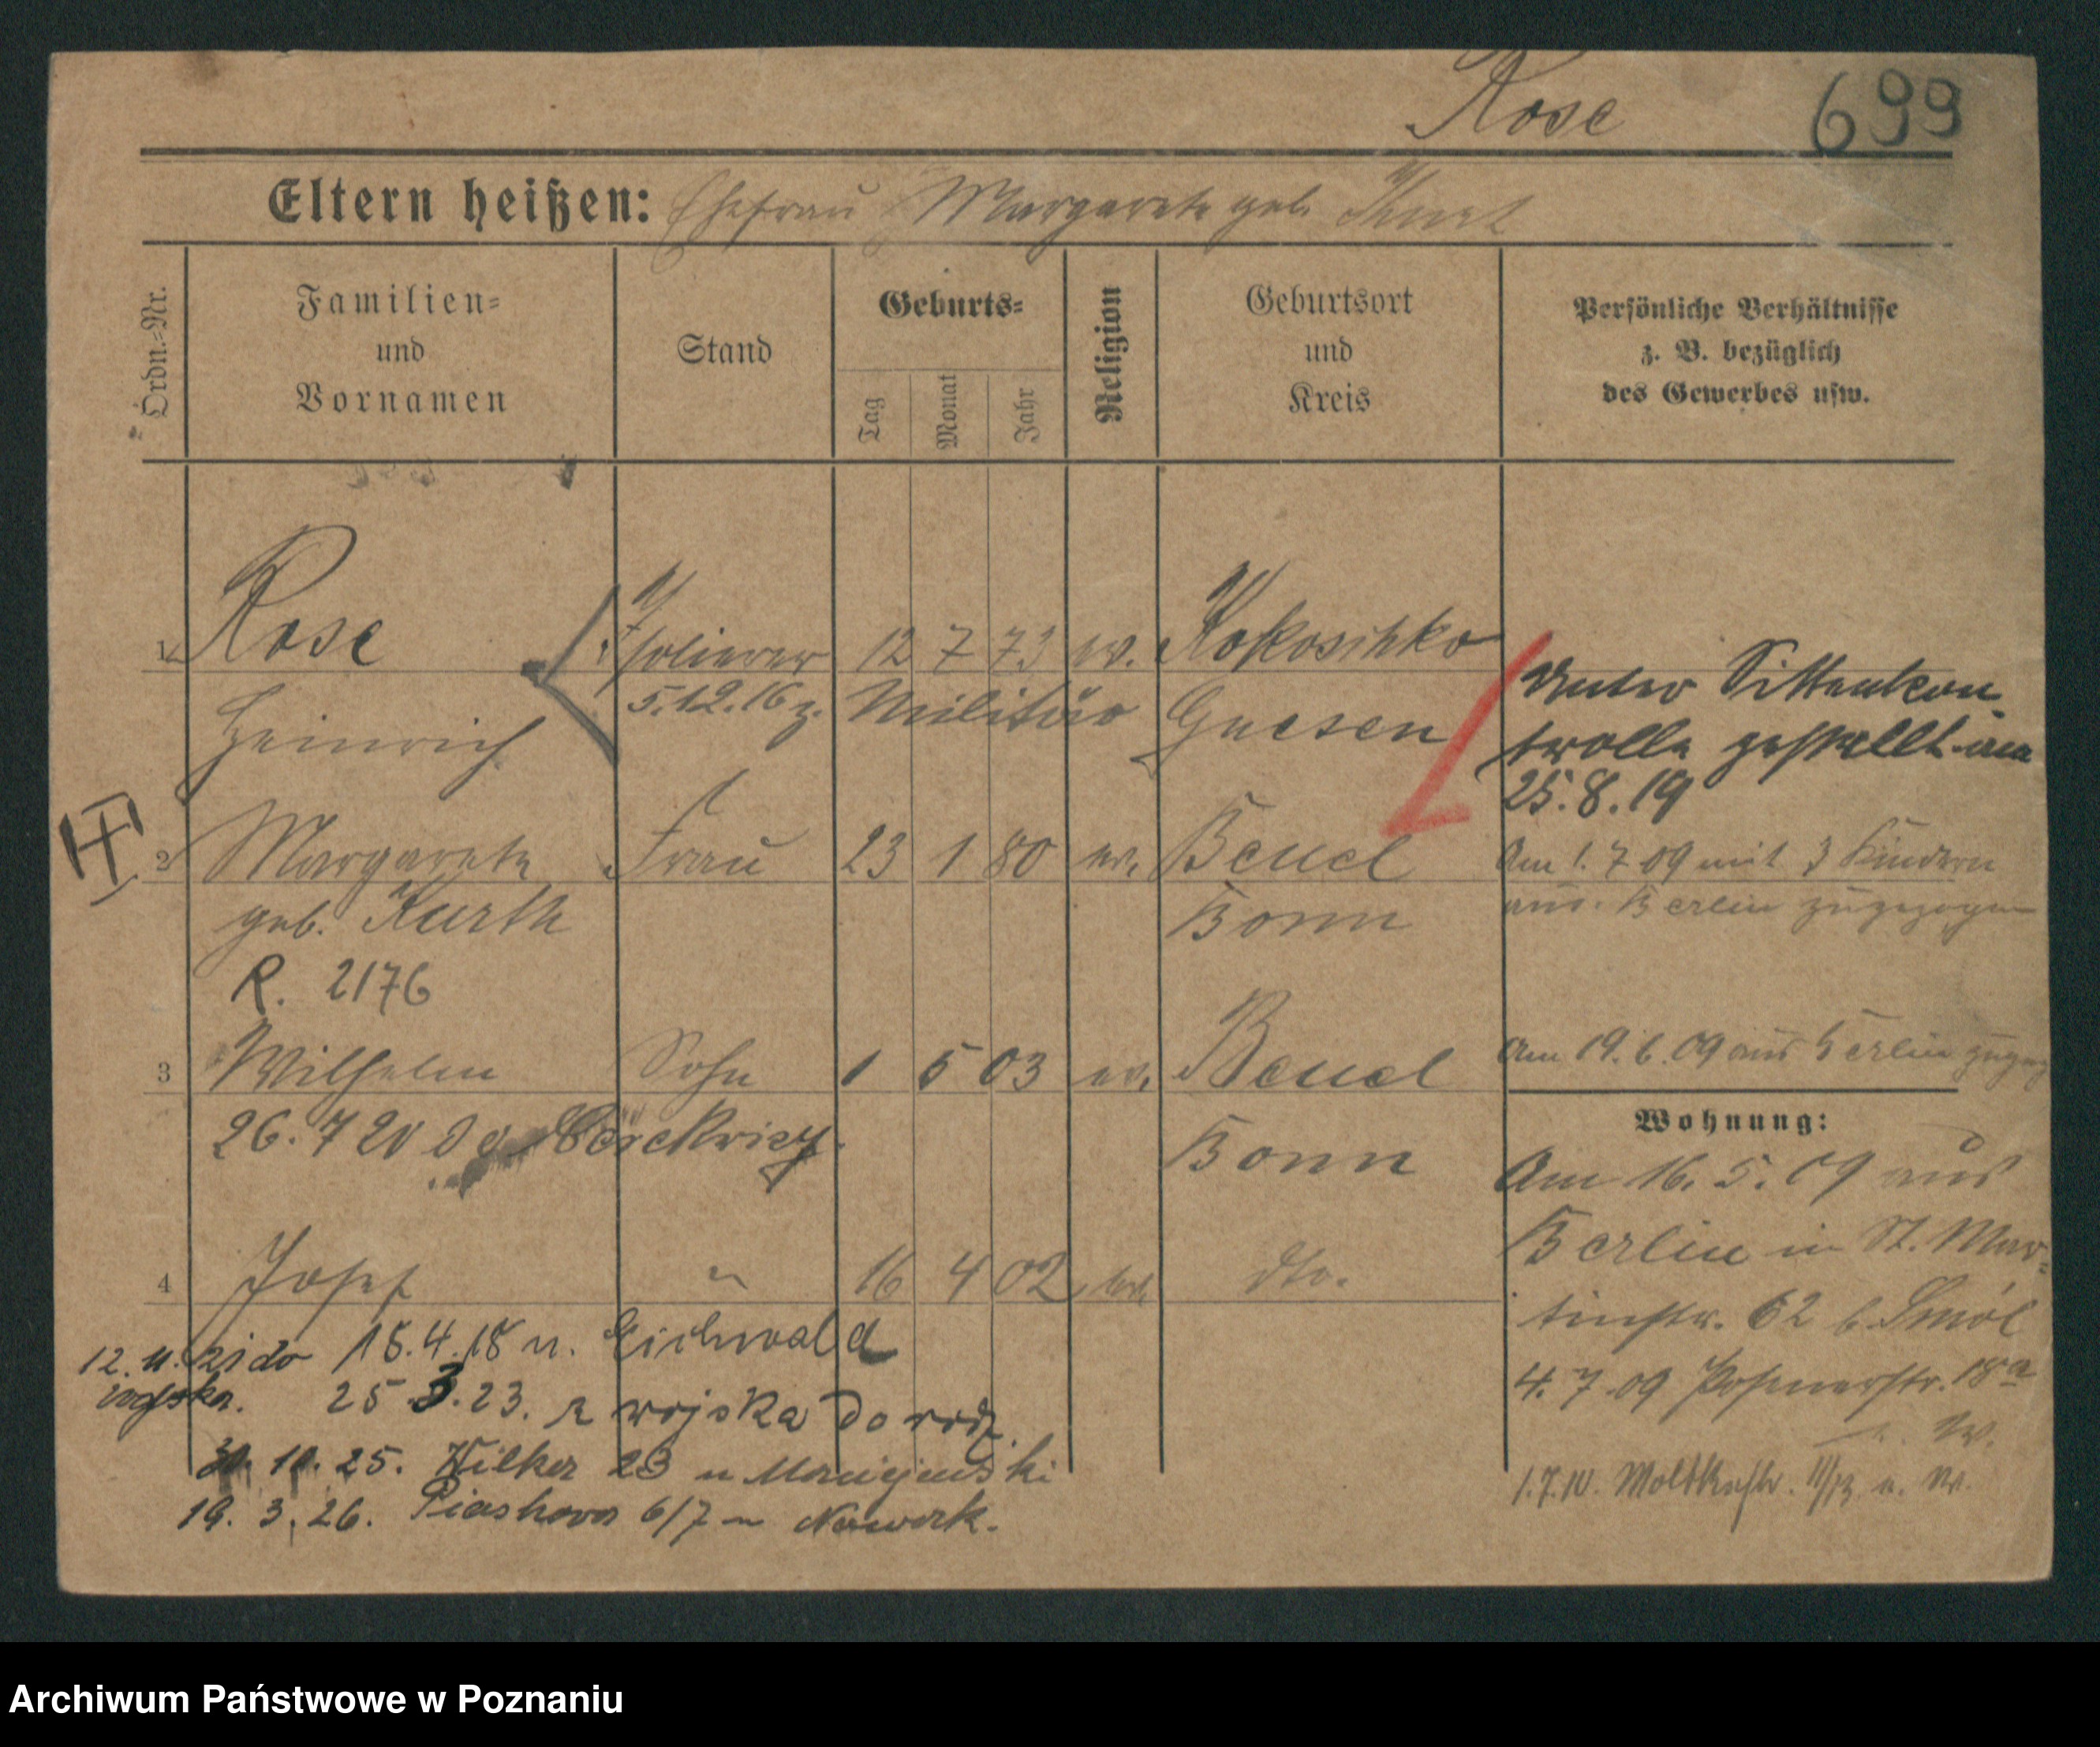 Rose 699
Eltern heißen: Ehefrau Margarete geb.
Ordn.-Nr.
Familien-
und
Vornamen
Stand
Geburts-
Tag
Monat
Jahr
Religion
Geburtsort
und
Kreis
Persönliche Verhältnisse
z. B. bezüglich
des Gewerbes usw.
1 Rose Isolierer 12 7 73 ev. Kokoschko
Heinrich 5.12.16 z. Militär Gnesen
Unter Sittenkon-
trolle gestellt am
25.8.19
2 Margarete Frau 23 1 80 ev. Beuel
geb. Kurth Bonn
R. 2176
Am 1.7.09 mit 3 Kindern
aus Berlin zugezogen
3 Wilhelm Sohn 1 5 03 ev. Beuel
26.7 20 do
Bonn
Am 19.6.09 aus Berlin zugez
Wohnung:
Am 16.5.09 aus
Berlin in St. Mar-
tinstr. 62 b. Smól
4.7.09 Posenerstr. 18a
u. W.
1.7.10. Moltkestr. u. W.
4 Josef " 16 4 02 dto.
12. 4. 21 do 15.4.18 u. Eichwald
wojska. 25 3.23. z wojska do rodz.
30. 10. 25. 23 u
19. 3. 26. 6/7 u Nowork.
Archiwum Państwowe w Poznaniu